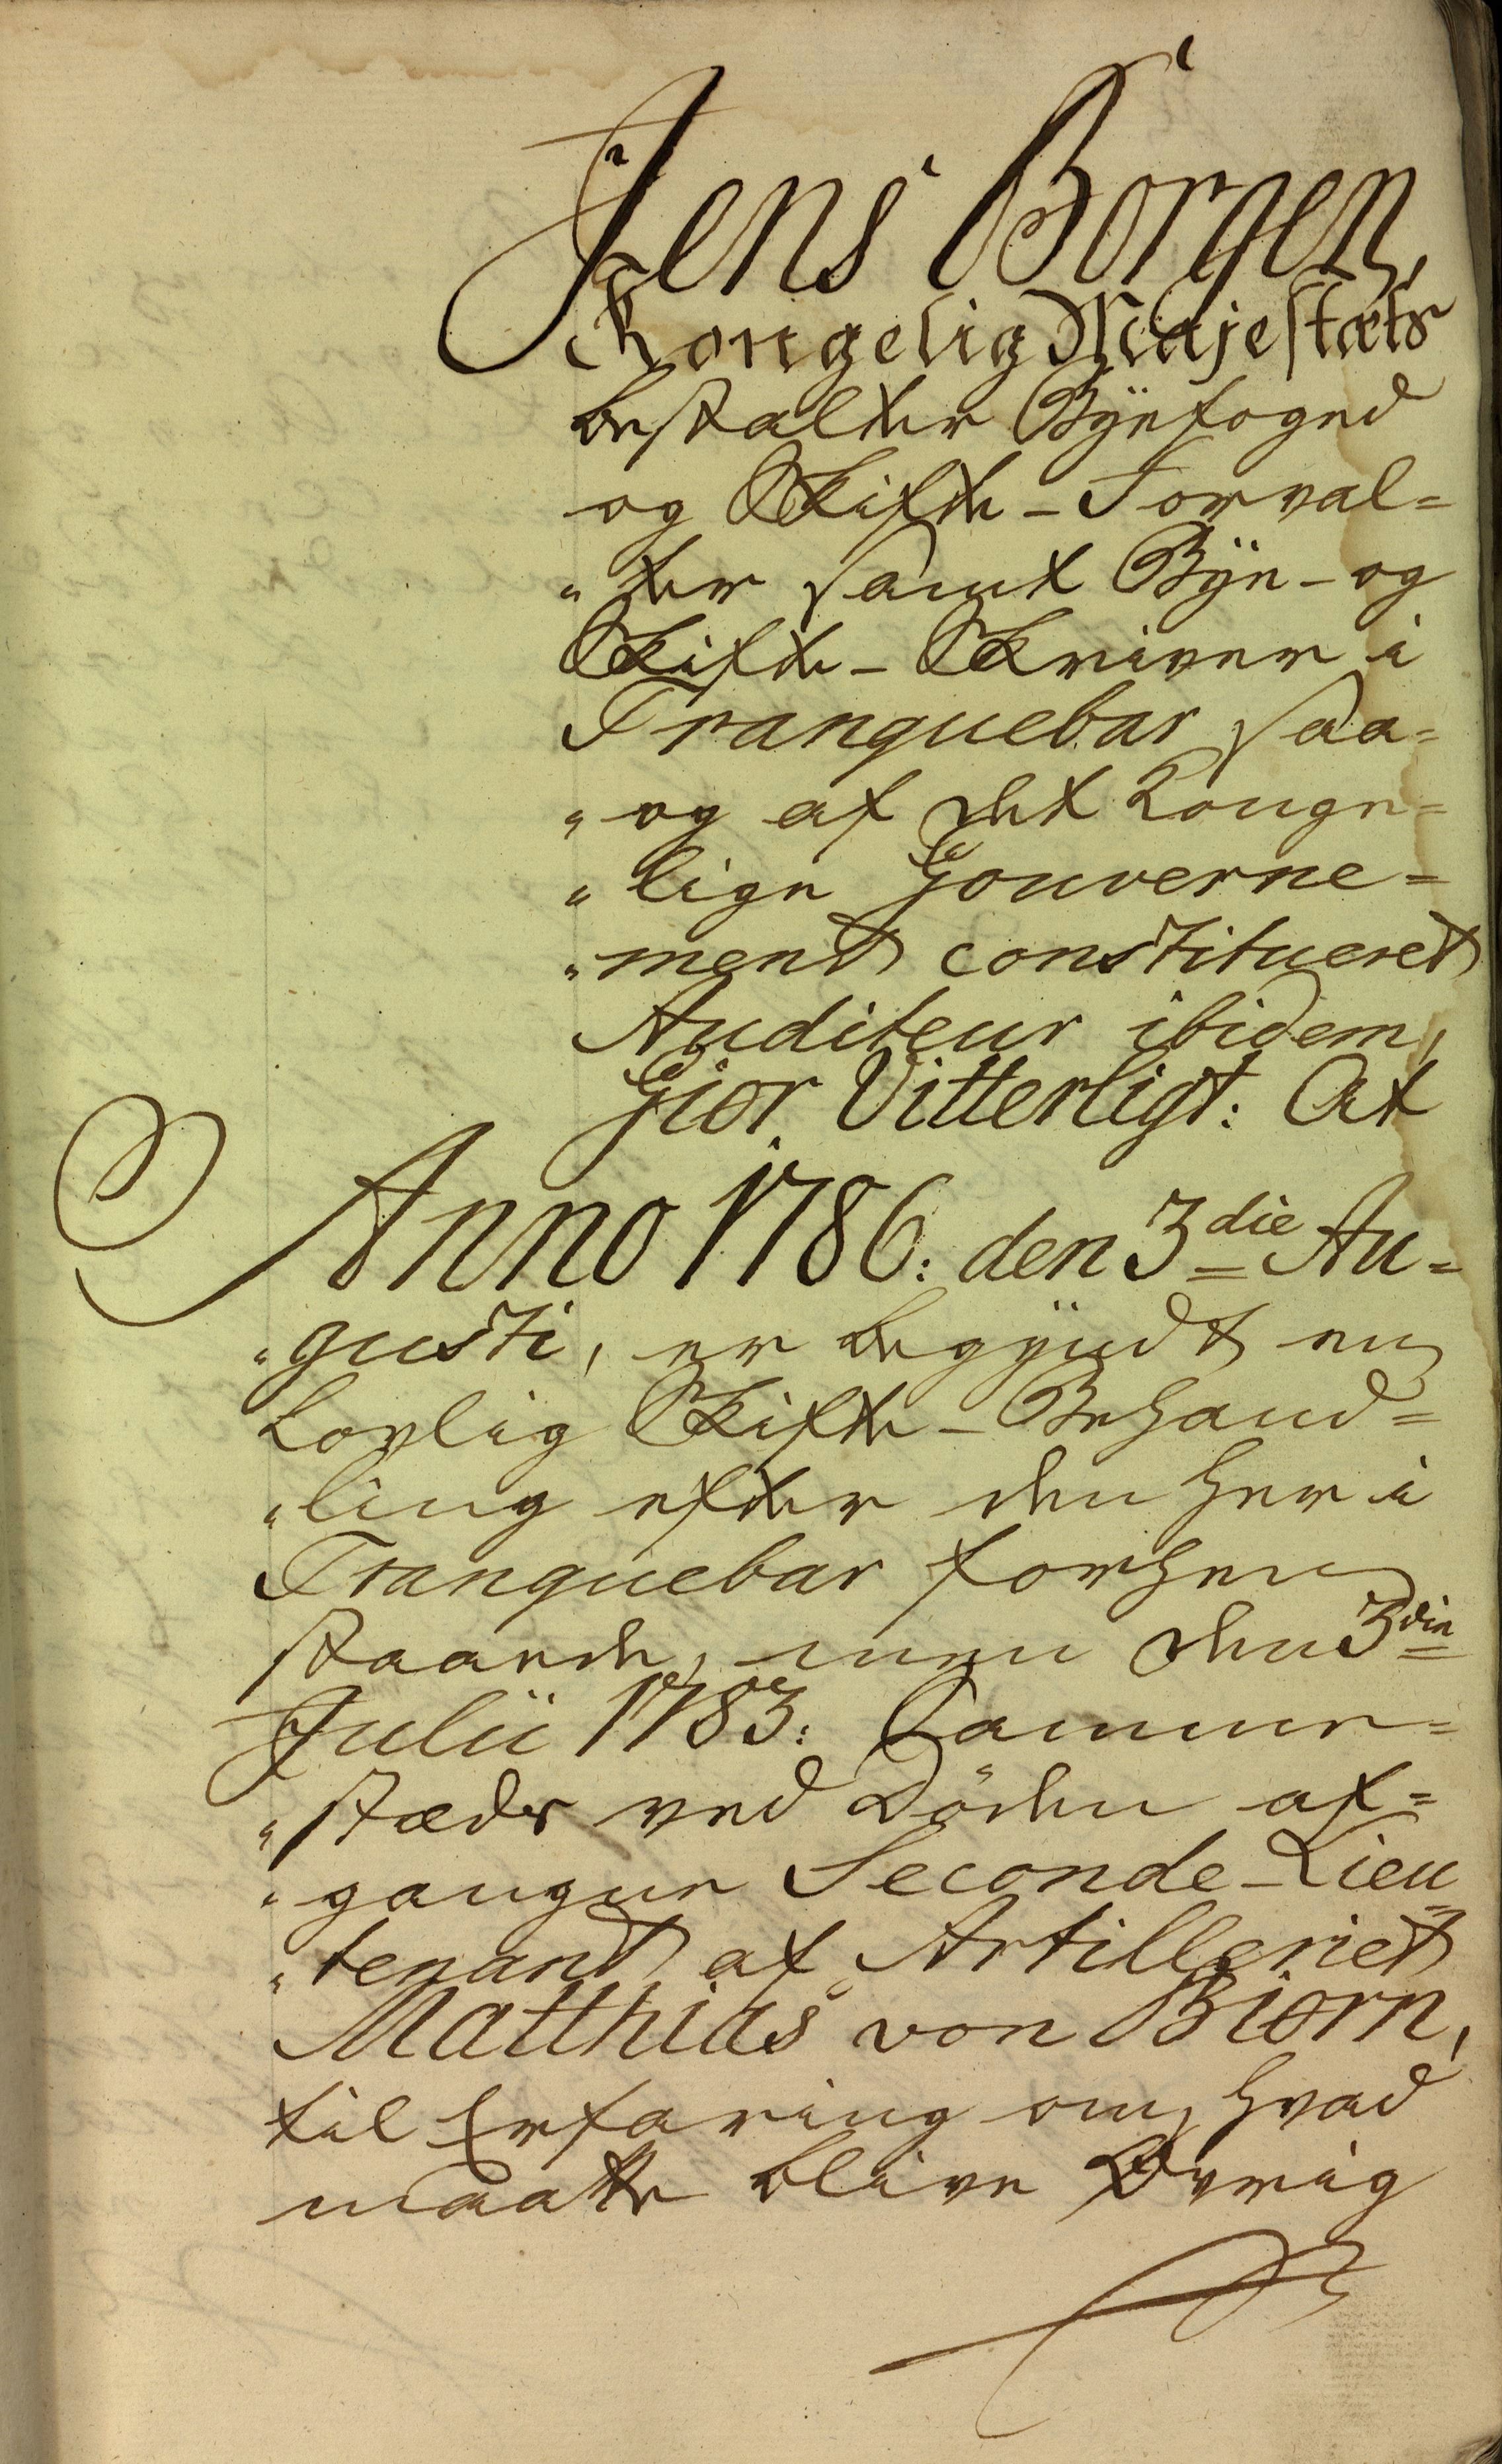 Jens Borgen,
Kongelig Majestæts
bestalter Byefoged
og Skifte-Forval=
„ter samt Bye- og
Skifte-Skriver i
Tranquebar saa=
„og af det Konge=
„lige Gouverne=
„ment constitueret
Auditeur ibidem,
Giør Vitterligt: At
Anno 1786: den 3die Au=
„gusti, er begyndt en
Lovlig Skifte-Behand=
„ling efter den her i
Tranquebar forhen
staaende, men den 3die
Julii 1783: Samme=
„stæds ved Döden af=
„gangne Seconde-Lieu
„tenant af Artilleriet
Matthias von Biørn,
til Erfaring om, hvad
maatte blive Øvrig